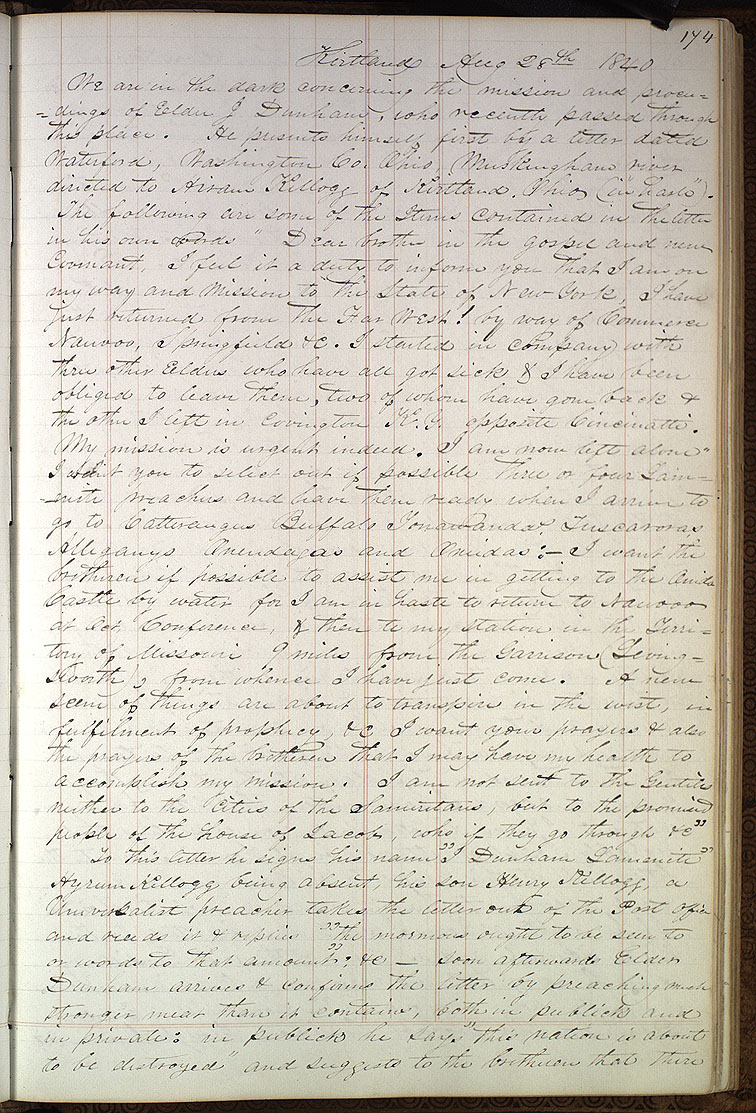 174
Kirtland Aug 28th 1840
We are in the dark concerning the mission and procee-
-dings of Elder J Dunham, who recently passed through
this place. He presents himself first by a letter dated
Waterford, Washington Co. Ohio, Muskingham river
directed to Hiram Kellogg of Kirtland Ohio, (in haste").
The following are some of the Items contained in the letter
in his own words " Dear brother in the gospel and new
Covenant, I feel it a duty to inform you that I am on
my way and Mission to the State of New York, I have
just returned from the Far West! by way of Commerce
Nauvoo, Springfield &c. I started in company with
three other Eelders who have all got sick & I have been
obliged to leave them, two of whom have gone back &
the other I left in Covington K.Y. opposite Cincinatti.
My mission is urgent indeed. I am now left alone"
I want you to select out if possible three or four Lam-
-nite preachers and have them ready when I arrive to
go to Catteraugus Buffalo Tonawanda Tuscaroras
Alleganys Onendagas and Oneidas:— I want the
brotheren if possible to assist me in getting to the Onida
Castle by water for I am in haste to return to Nauvoo
at Oct Conference, & then to my station in the Terri-
tory of Missouri 9 miles from the Garrison (Leving-
Worth, from whence I have just come. A new
scene of things are about to transpire in the west, in
fulfilment of prophecy, &c I want your prayers & also
the prayers of the brotheren that I may have my health to
accomplish my mission. I am not sent to the Gentiles
neither to the Cities of the Samaritans, but to the promised
people of the house of Jacob who if they go through &c"
To this letter he signs his name "J Dunham Lamenite"
Hyrum Kellogg being absent, his son Henry Kellogg, a
Universalist preacher takes the letter out of the Post Office
and reads it & replies "the mormons ought to be seen to
or words to that amount" &c — soon afterwards Elder
Dunham arrives & confirms the letter by preaching much
stronger meat than it contains, both in publick and
in private: in publick he says "this nation is about
to be distroyed" and suggests to the brotheren that there